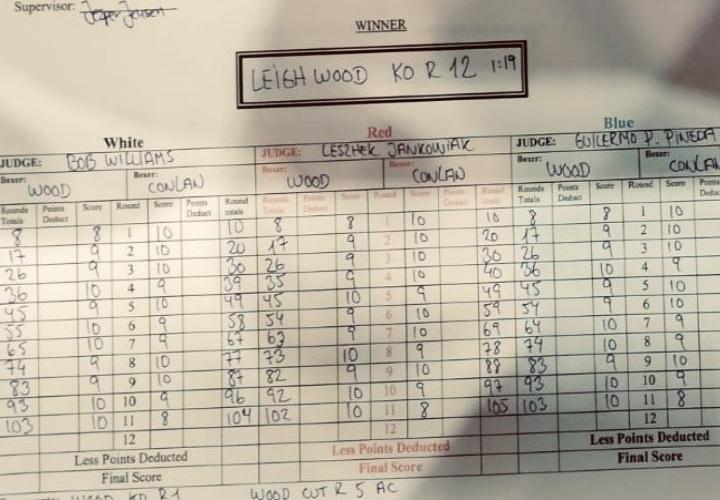 Supervisor:
WINNER
LEIGH WOOD KO R 12 1:19
White Red Blue
JUDGE: BOB WILLIAMS JUDGE: LESZHEK JANKOWIAK JUDGE: GUILERMO P. PINEDA
Boxer: Boxer: Boxer: Boxer: Boxer: Boxer:
WOOD CONLAN WOOD CONLAN WOOD CONLAN
Rounds Totals Points Deduct Score Round Score Points Deduct Round totals Rounds Totals Points Deduct Score Round Score Points Deduct Rounds totals Rounds Totals Points Deduct Score Round Score Points Deduct
8 8 1 10 10 8 8 1 10 10 8 8 1 10
17 9 2 10 20 17 9 2 10 20 17 9 2 10
26 9 3 10 30 26 9 3 10 30 26 9 3 10
36 10 4 9 39 35 9 4 10 40 36 10 4 9
45 9 5 10 49 45 10 5 9 49 45 9 5 10
55 10 6 9 58 54 9 6 10 59 54 9 6 10
65 10 7 9 67 63 9 7 10 69 64 10 7 9
74 9 8 10 77 73 10 8 9 78 74 10 8 9
83 9 9 10 87 82 9 9 10 88 83 9 9 10
93 10 10 9 96 92 10 10 9 97 93 10 10 9
103 10 11 8 104 102 10 11 8 105 103 10 11 8
12 12 12
Less Points Deducted Less Points Deducted Less Points Deducted
Final Score Final Score Final Score
WOOD KD R1 WOOD CUT R 5 AC